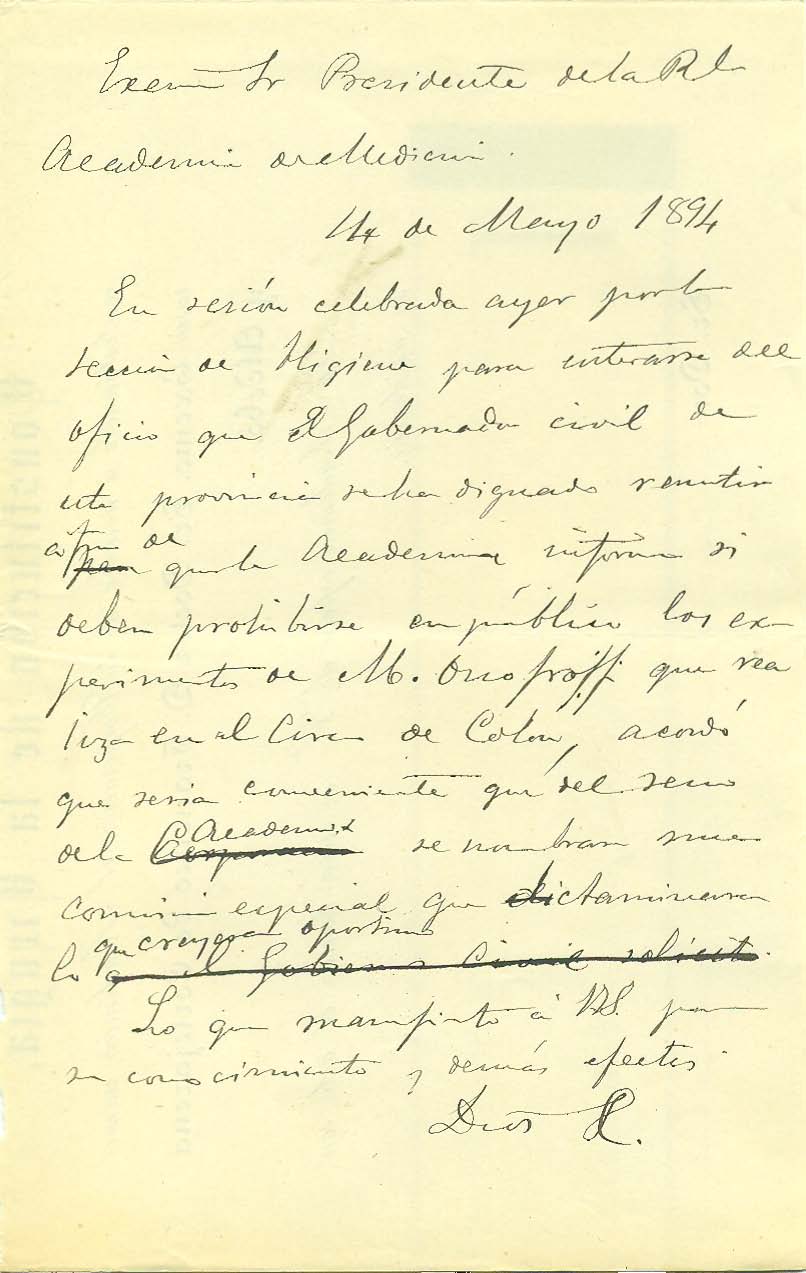 Excmo Sr Presidente de la Rl
Academia de Medicina.
14 de Mayo 1894
En sesión celebrada ayer por la
sección de Higiene para enterarse del
oficio que El Gobernador civil de
esta provincia se ha dignado remitir
a fin de
para que la Academia informe si
deben prohibirse en público los ex-
perimentos de M. Onofroff. que rea
liza en el Circo de Colón, acordó
que seria conveniente que del seno
Academia
de la Corporacion se nombrara una
comisión especial que dictaminara
que creyera oportuno
lo que el Gobierno Civil solicita.
Lo que manifiesto á V.S. para
su conocimiento y demás efectos.
Dios